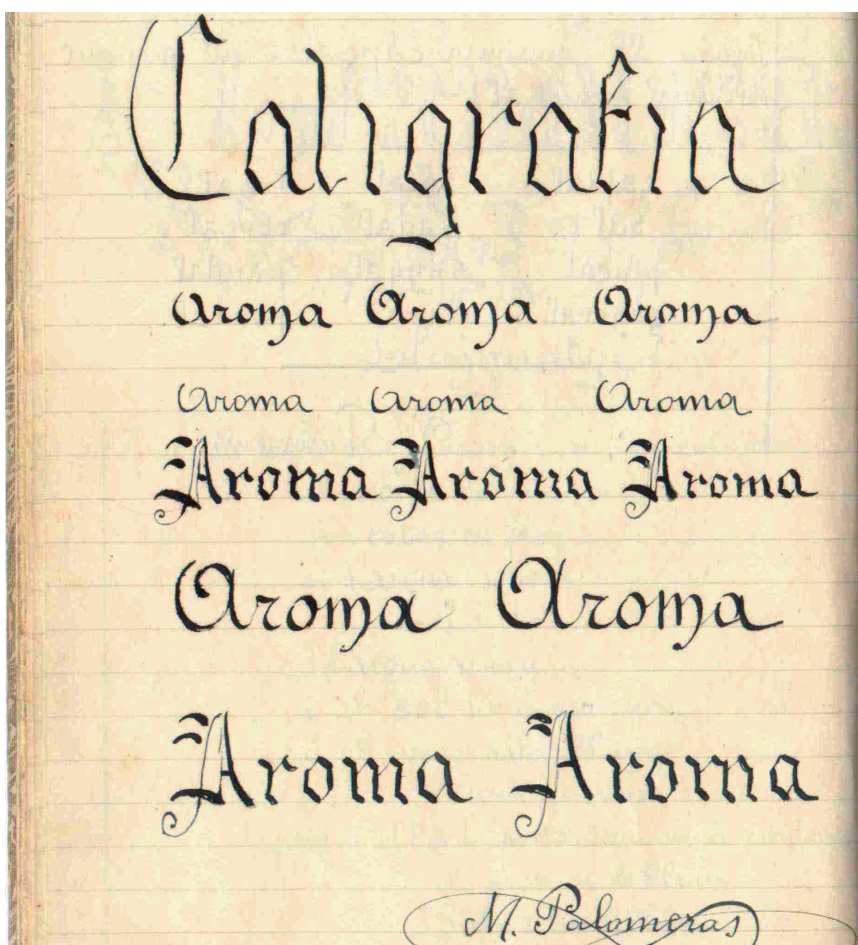 Caligrafia
Aroma Aroma Aroma
Aroma Aroma Aroma
Aroma Aroma Aroma
Aroma Aroma
Aroma Aroma
M. Palomeras